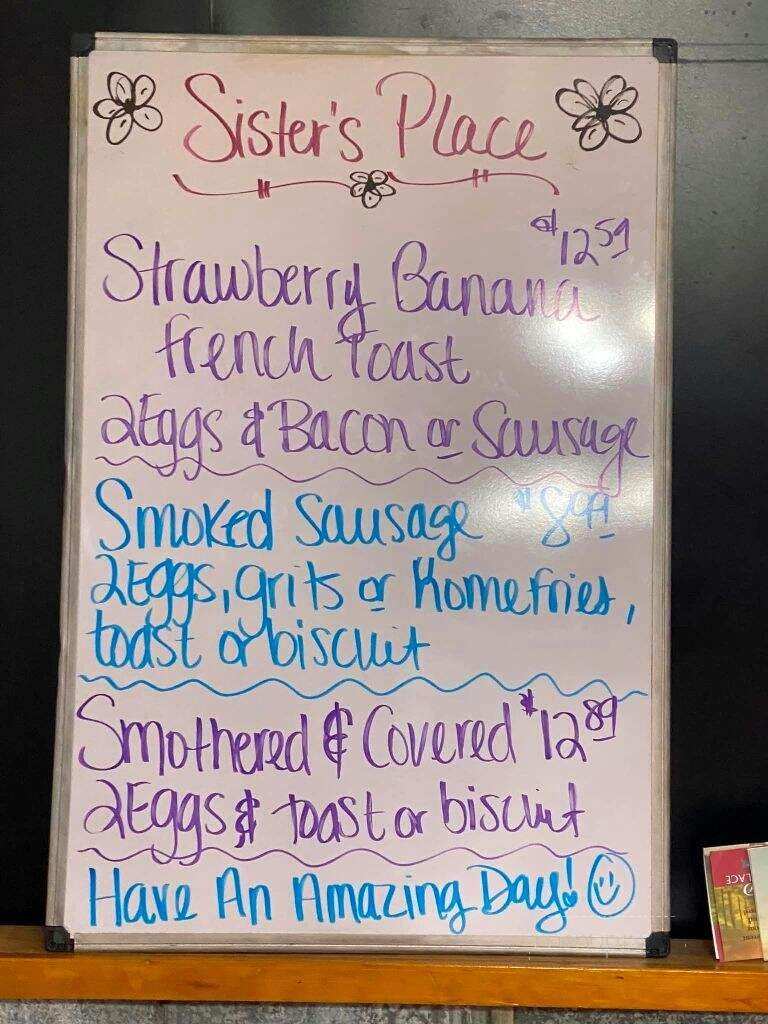 Sister's Place
$12.59
Strawberry Banana
French Toast
2 Eggs & Bacon or Sausage
Smoked Sausage $8.99
2 Eggs, grits or Homefries,
toast or biscuit
Smothered & Covered $12.89
2 Eggs & toast or biscuit
Have An Amazing Day!
LACE